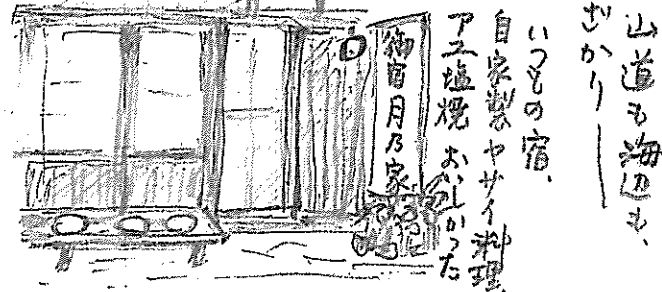 山道も海辺も、
ざかりー
いつもの宿、
自家製ヤサイ料理
アユ塩焼 おいしかった
御宿月乃家